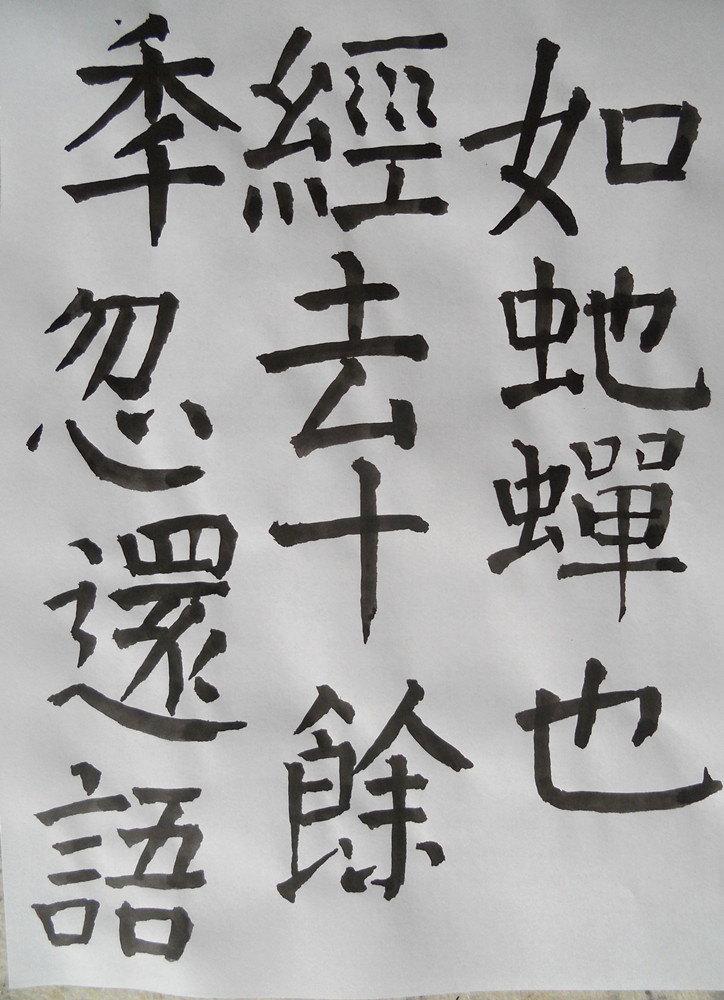 如虵蟬也
經去十餘
季忽還語